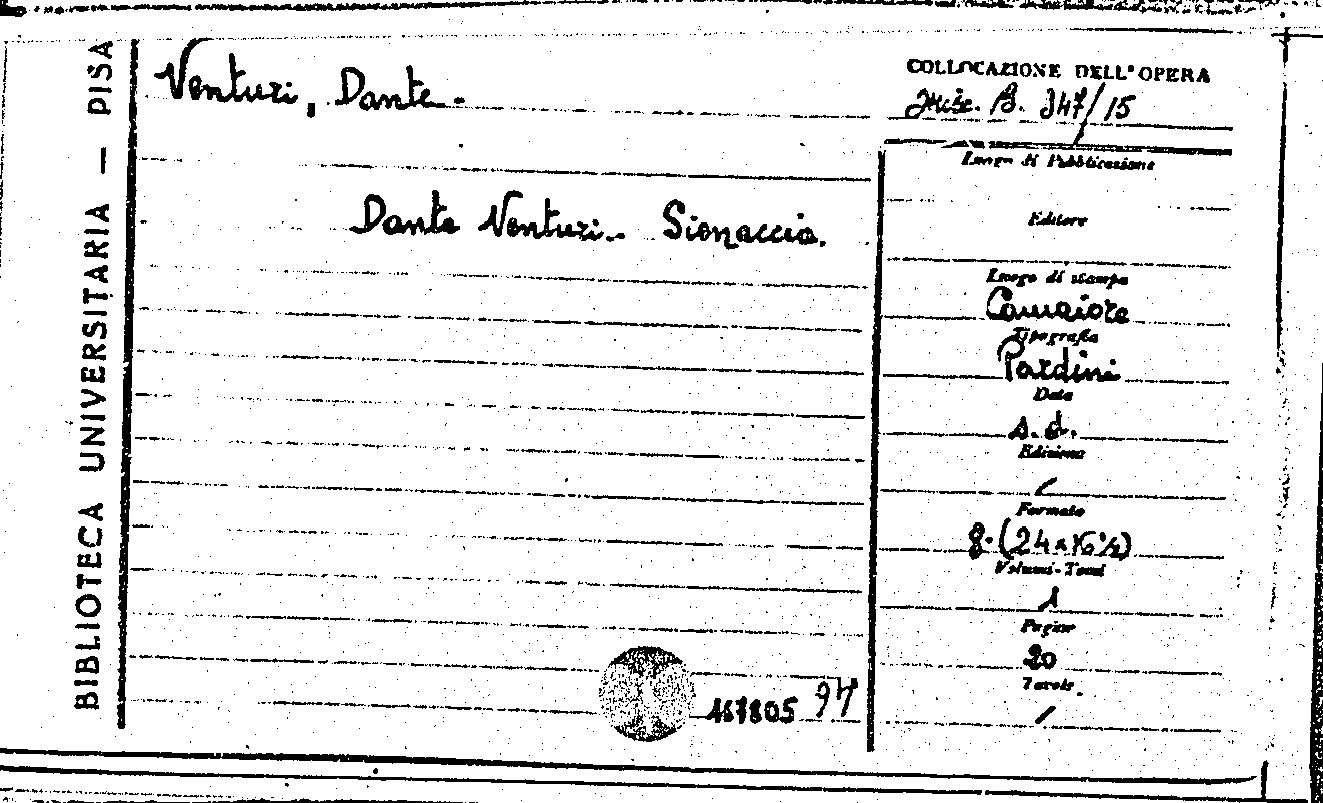 BIBLIOTECA UNIVERSITARIA — PISA
Venturi, Dante.
Dante Venturi. Sionaccia.
COLLOCAZIONE DELL'OPERA
Misc. B. 347/15
Luogo di Pubblicazione
Editore
Luogo di stampa
Camaiore
Tipografia
Pardini
Data
s. d.
Edizione
/
Formato
8.(24x16½)
Volumi-Tomi
1
Pagine
20
Tavole
/
167805 97